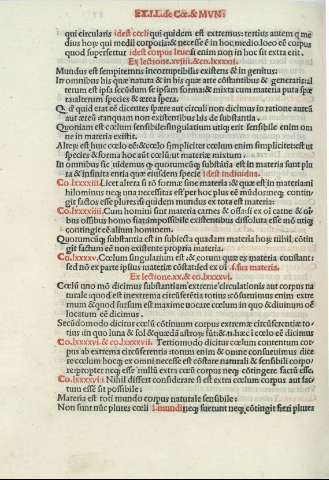 EX.I.L. de Cœ. & MVN:
qui circularis idest cœli qui quidem est extremus: tertius autem q me
dius horꝶ qui medii corporis: & necesse é in hoc medio loco eē corpus
quod superfertur idest corpus leue si enim non in loc sit extra erit.
Ex lectione.xviiii. & cō.lxxxxii.
Mundus est sempiternus incorruptibilis existens & in genitus:
In omnibus his quæ natura & in his quæ arte cōstantibus & generatis al
terum est ipsa secūdum se ipsam forma: & mixta cum materia puta spæ
ræ alterum species & ærea spera.
Q, d quid erat eē dicimus spæræ aut circuli non dicimus in ratione aurea
aut æream tanquam non existentibus his de substantia.
Quoniam est cœlum sensibile singularium utiqꝫ erit sensibile enim om
ne in materia existit.
Alteꝶ est huic cœlo eē: & cœlo simpliciter cœlum enim simpliciteꝶ est ut
species & forma hoc aūt cœlū. ut materiæ mixtum.
In omnibus sic uidemus qꝫ quorumcūqꝫ substātia est in materia sunt plu
ra & infinita entia quæ eiusdem speciei idest indiuidua.
Co.lxxxxiii. Licet altera si nō formæ sine materia & quæ est in materia ni
hilominus neqꝫ una necessitas est per hoc plus eē mūdorum neqꝫ conti
git factos esse plures: si quidem mundus ex tota est materia:
Co.lxxxxiiii. Cum homini sunt materia carnes & ossa: si ex oi carne & oi
bus ossibus homo fiat impossibile existentibus dissoluta esse nō utiqꝫ
contingit eē alium hominem.
Quorumcūqꝫ substantia est in subiecta quadam materia hoꝶ nihil cōtin
git factum eē non existente propria materia.
Co.lxxxxv. Cœlum singularium est: & eorum quæ ex materia constant:
sed nō ex parte ipsius materiæ cōstat sed ex oi sua materia.
Ex lectione.xx. & co.lxxxxvi.
Cœlū uno mō dicimus substantiam extremæ circulationis aut corpus na
turale quod est inextrema circūferētia totius solemus enim extre
mum & quod sursum est maxime uocare cœlum in quo & diuinum oē
locatum eē dicimus.
Secūdo modo dicitur cœlū cōtinuum corpus extremæ circūferentiæ to
tius in quo luna & sol & quædā astroꝶ sunt & hæc i cœlo eē dicimus
Co.lxxxxvi. & co.lxxxxvii. Tertio modo dicitur cœlum contentum cor
pus ab extrema circūferentia totum enim & omne consueuimus dice
re cœlum hoc qꝫ ex omni necesse est cōstare naturali & sensibili corpo
re: propter neqꝫ esse nullū extra cœlū corpus neqꝫ cōtingere factū esse.
Co.lxxxxvii: Nihil differt considerare si est extra cœlum corpus aut fac
tum esse sit possibile
Materia est toti mundo corpus naturale sensibile:
Non sunt nūc plures cœli i.mundi neqꝫ fuerunt neqꝫ cōtingit fieri plures